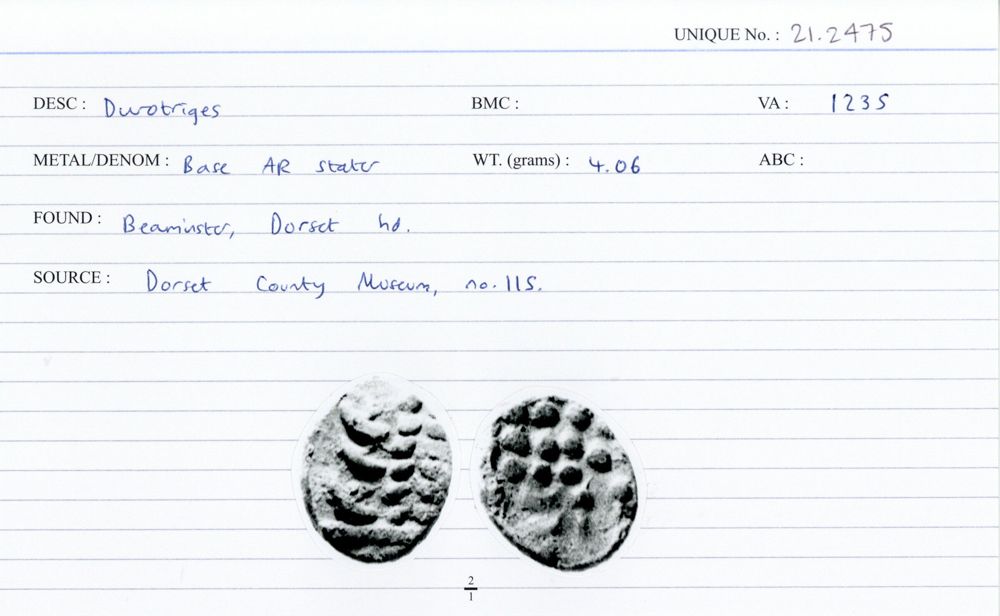 UNIQUE No. : 21.2475
DESC : Durotriges BMC : VA : 1235
METAL/DENOM : Base AR stater WT. (grams) : 4.06 ABC :
FOUND : Beaminster, Dorset hd.
SOURCE : Dorset County Museum, no. 115.
2
1